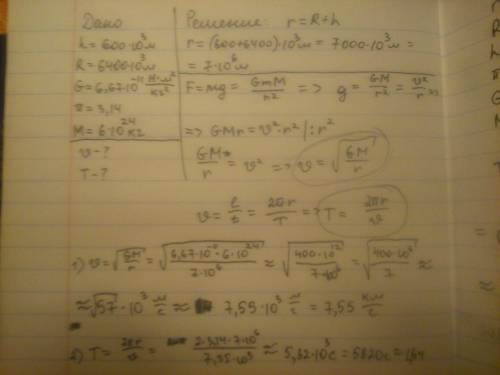 Дано
h = 600·10³м
R = 6400·10³м
G = 6,67·10⁻¹¹ Н·м²/кг²
π = 3,14
M = 6·10²⁴кг
υ - ?
T - ?
Решение: r = R+h
r = (600+6400)·10³м = 7000·10³м =
= 7·10⁶м
F = mg = GmM/r² => g = GM/r² = υ²/r =>
=> GMr = υ²·r² |: r²
GM/r = υ² => υ = √(GM/r)
υ = l/t = 2πr/T => T = 2πr/υ
1) υ = √(GM/r) = √(6,67·10⁻¹¹·6·10²⁴/7·10⁶) ≈ √(400·10¹²/7·10⁶) = √(400·10⁶/7) ≈
≈ √57·10³ м/с ≈ 7,55·10³ м/с = 7,55 км/с
2) T = 2πr/υ = 2·3,14·7·10⁶/7,55·10³ ≈ 5,82·10³с = 5820с =